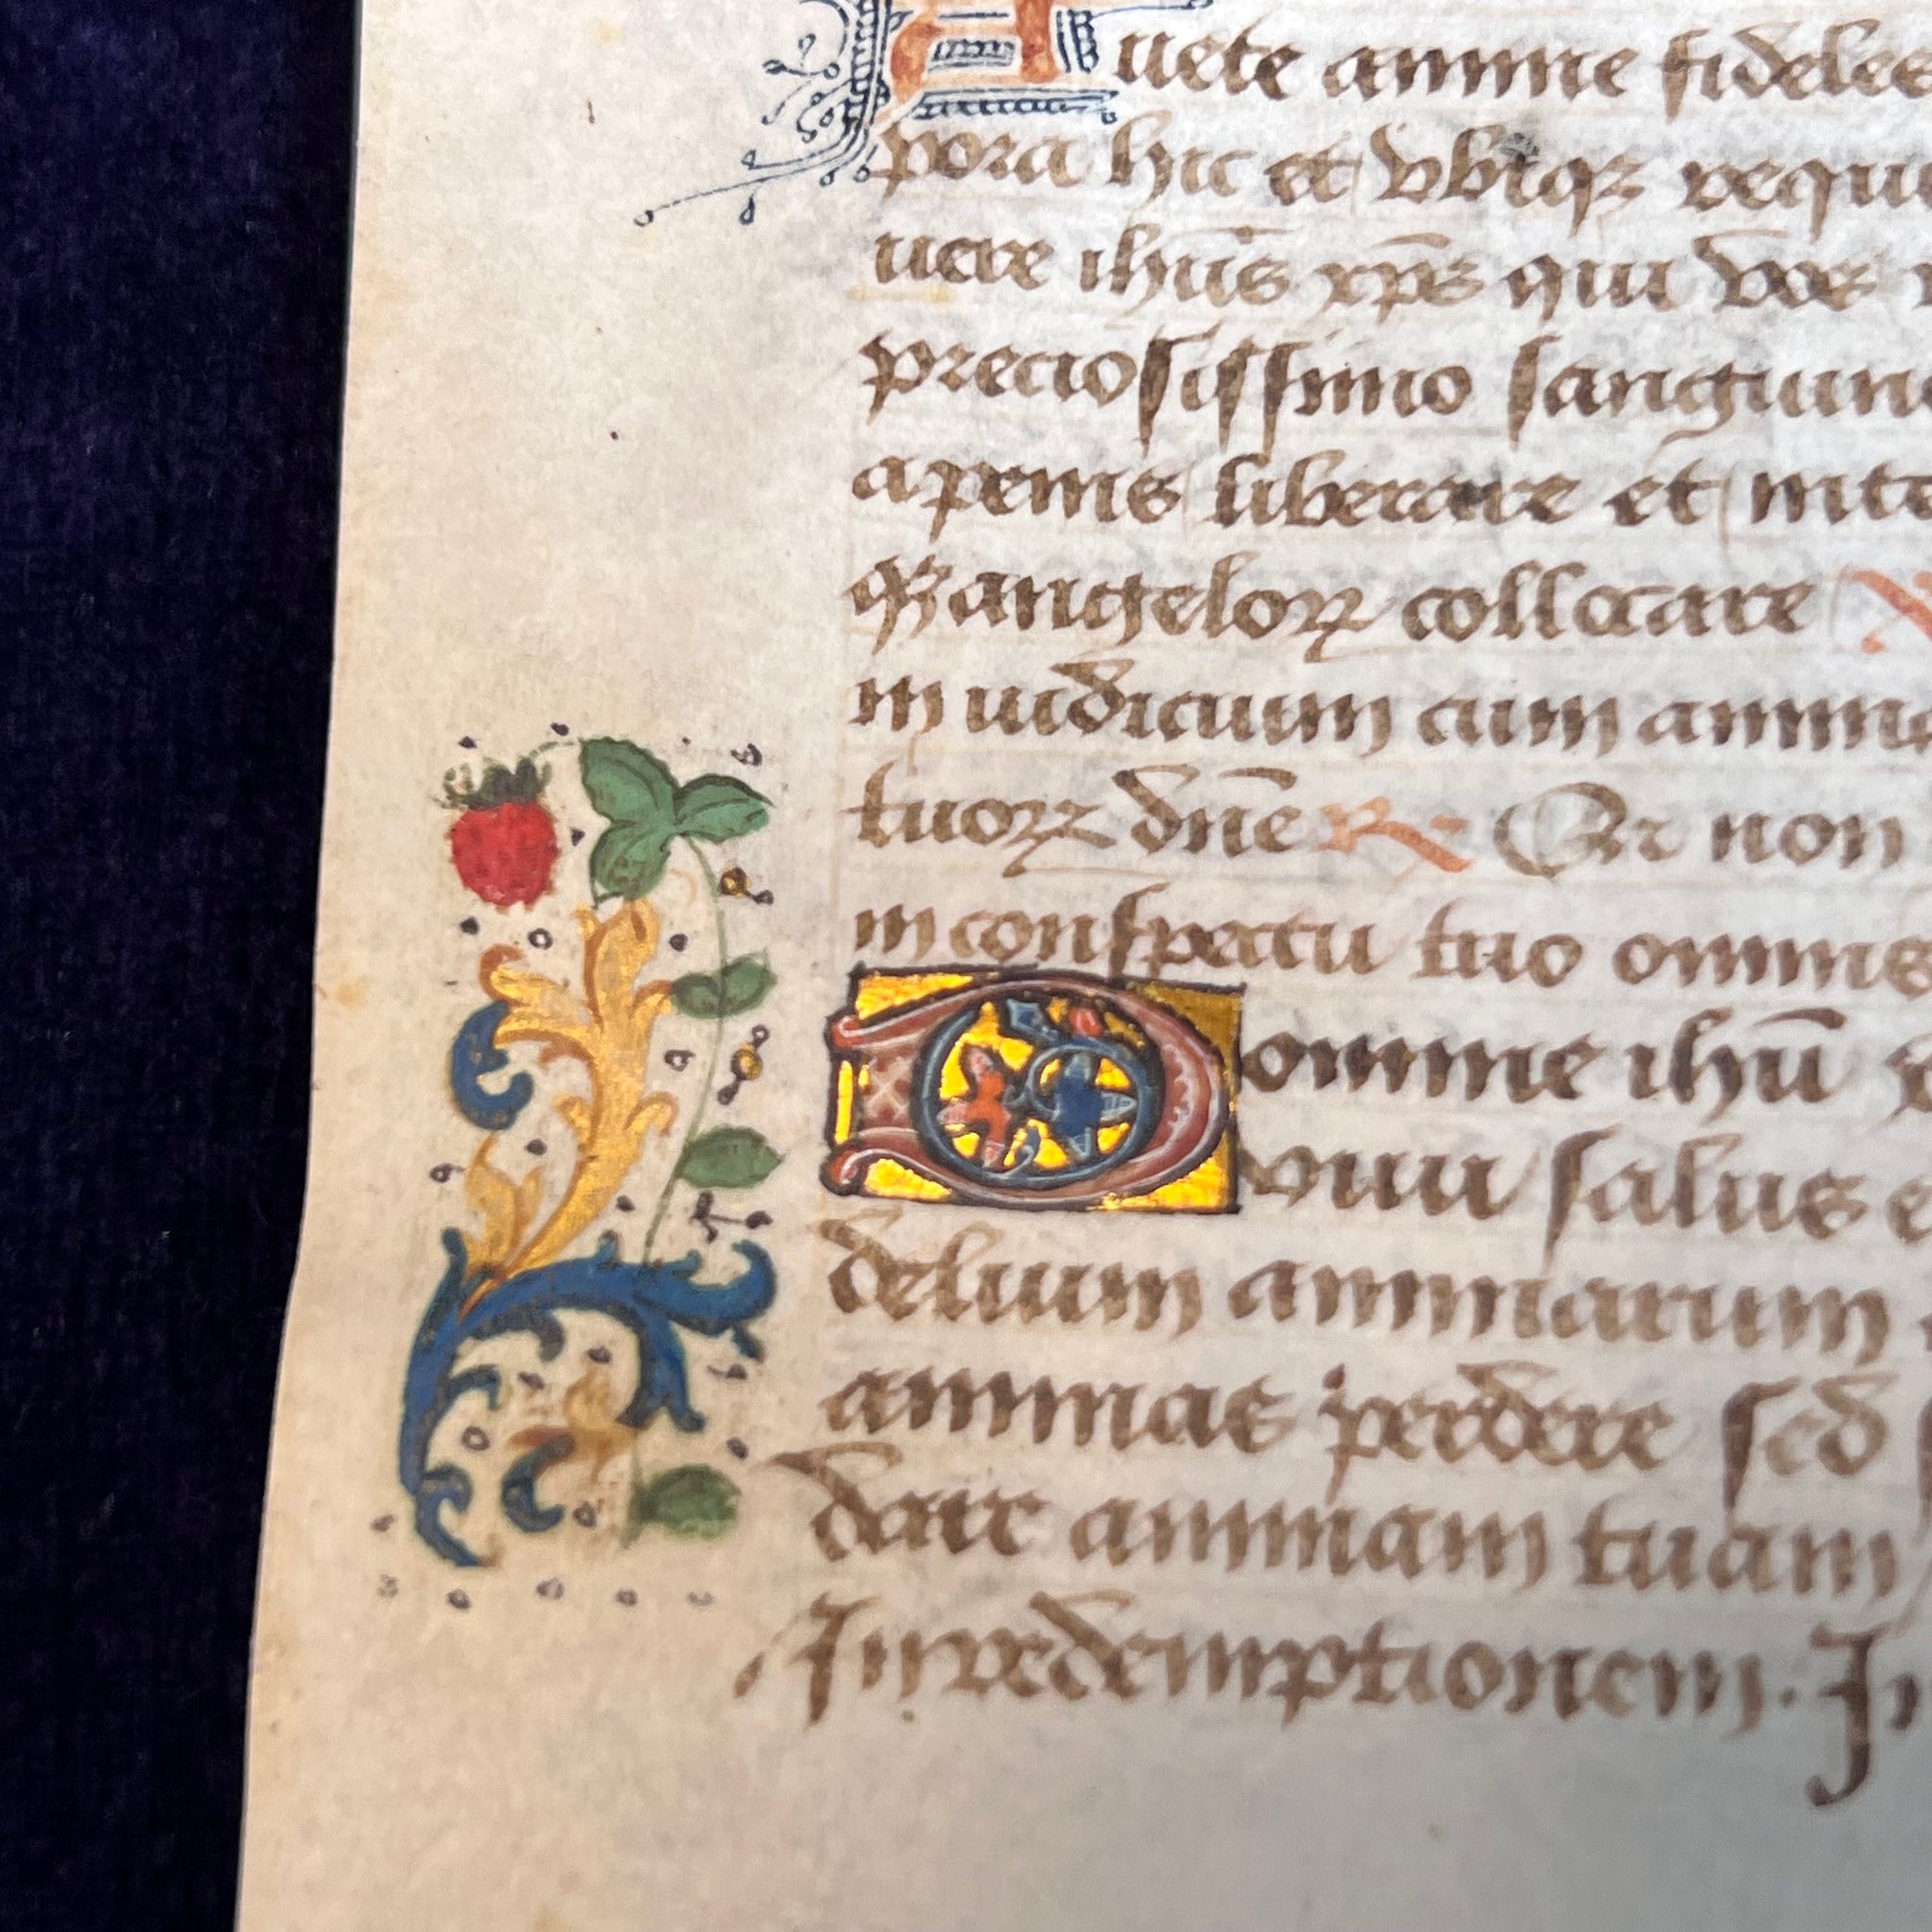 Auete anime fideles
pora hic et vbiqȝ requi
uere ihūs xp̄s qui vos
preciosissimo sanguine
a penis liberare et inte
qȝ angeloꝝ collocare ℣
in iudicium cum anima
tuoꝝ dn̄e ℟ Qr non
in conspectu tuo omnis
Domine ihū
viui salus e
delium animarum
animas perdere sed
dare animam tuam
In redemptionem. In